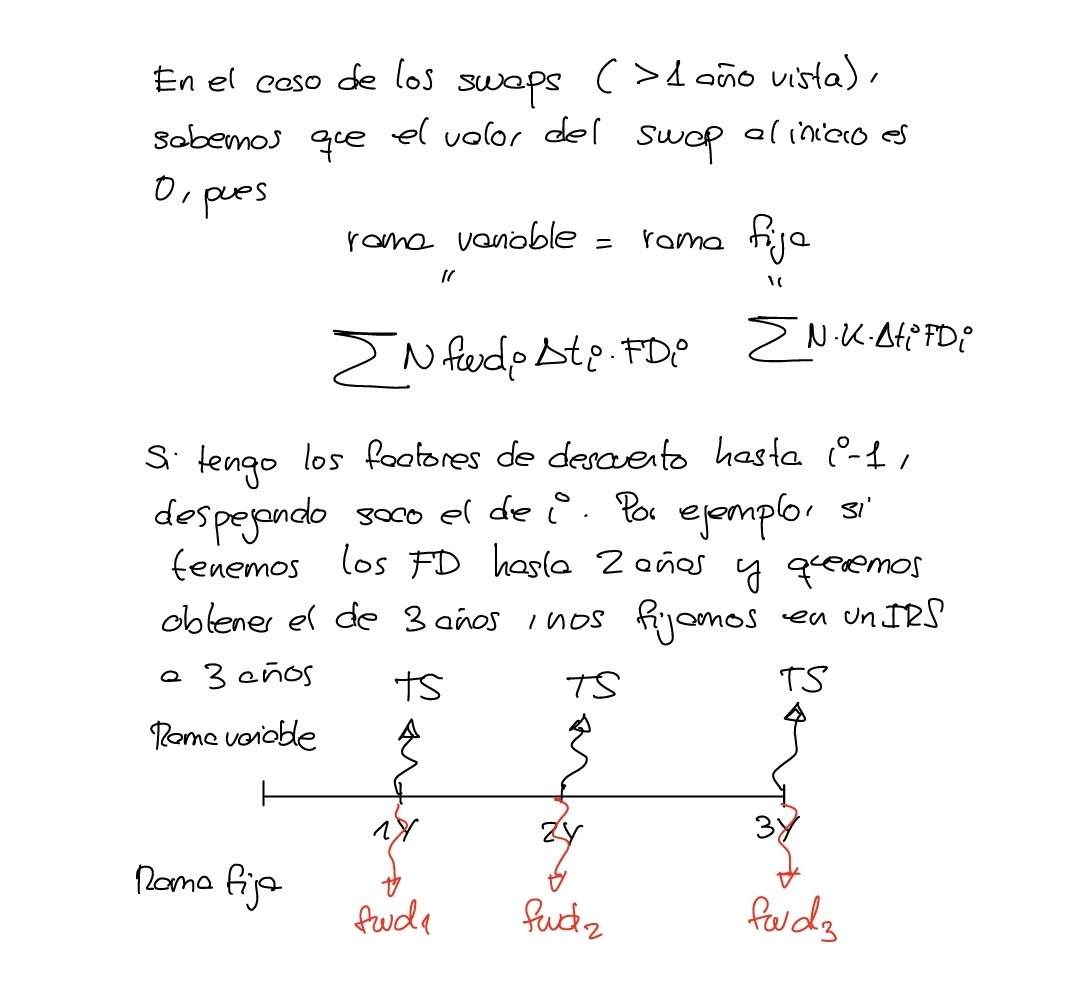 En el caso de los swaps ( >1 año vista),
sabemos que el valor del swap al inicio es
0, pues
rama variable = rama fija
" "
∑ N fwdᵢ Δtᵢ · FDᵢ ∑ N·K·Δtᵢ FDᵢ
Si tengo los factores de descuento hasta i-1,
despejando saco el de i. Por ejemplo, si
tenemos los FD hasta 2 años y queremos
obtener el de 3 años, nos fijamos en un IRS
a 3 años
TS TS TS
Rama variable
1Y 2Y 3Y
Rama fija
fwd₁ fwd₂ fwd₃